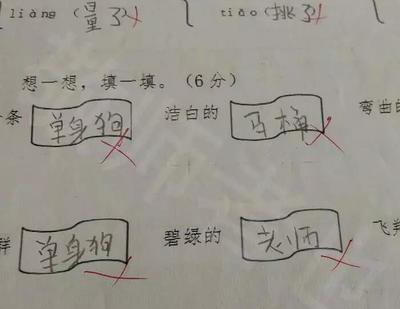 liàng (量了 tiāo (挑了
想一想，填一填。（6分）
条 单身狗 洁白的 马桶 弯曲的
群 单身狗 碧绿的 老师 飞翔